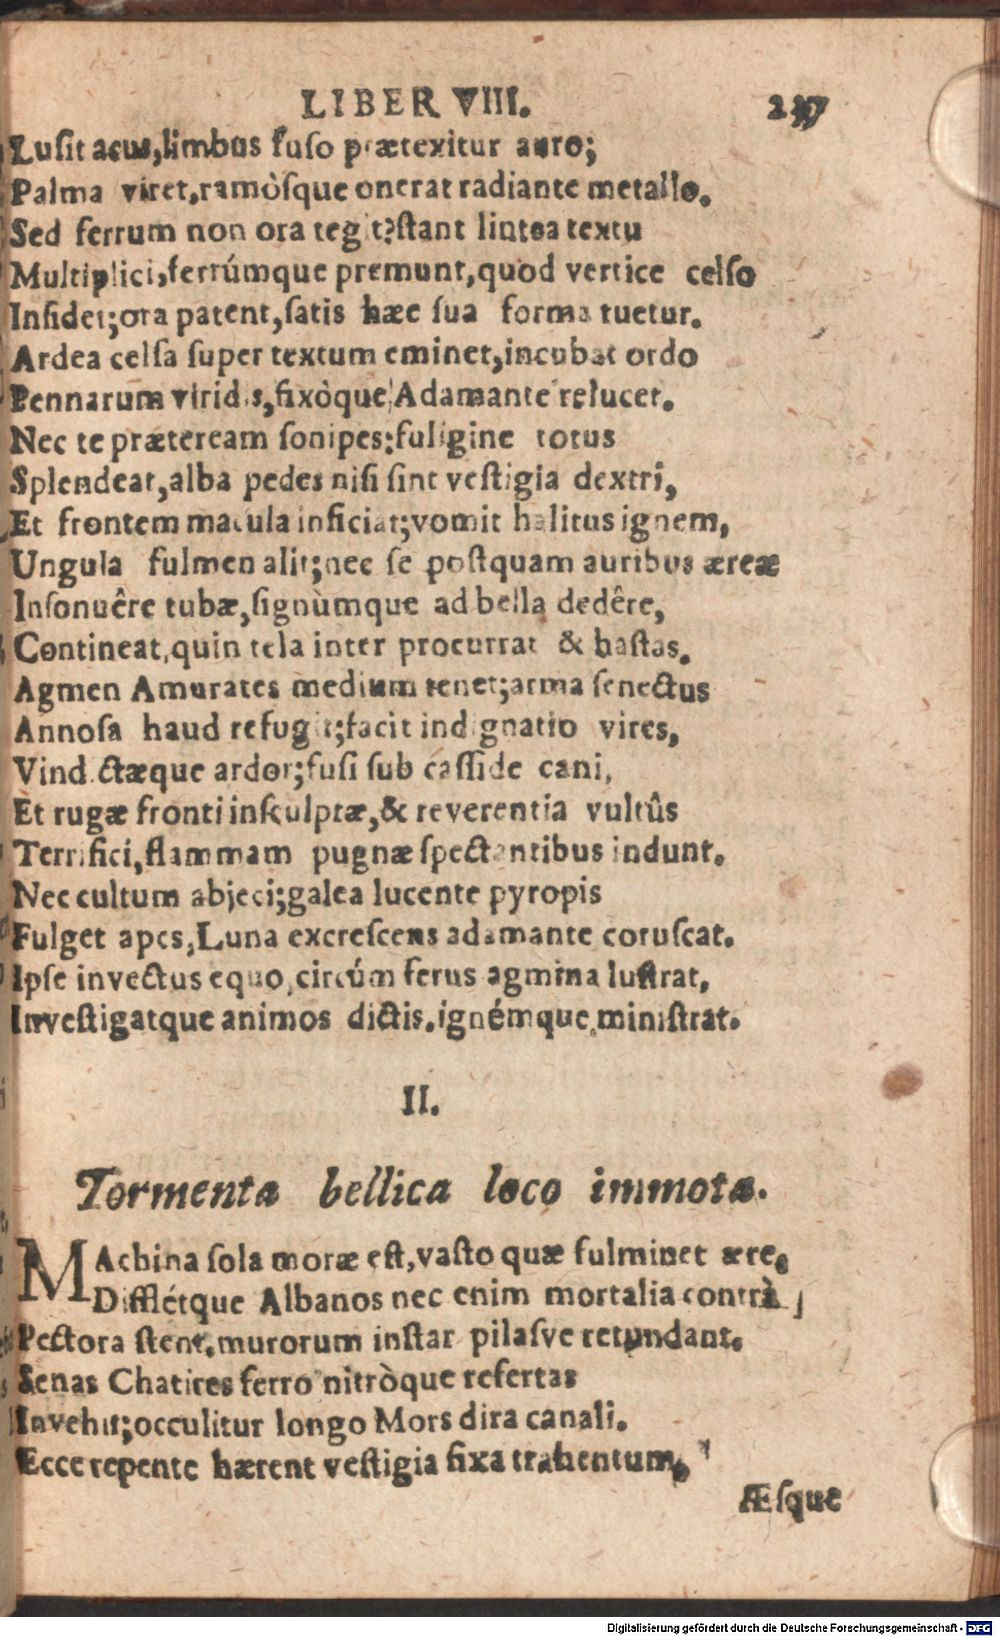 LIBER VIII. 237
Lusit acus, limbus fuso prætexitur auro;
Palma viret, ramòsque onerat radiante metallo.
Sed ferrum non ora tegit; stant lintea textu
Multiplici, ferrúmque premunt, quod vertice celso
Insidet; ora patent, satis hæc sua forma tuetur.
Ardea celsa super textum eminet, incubat ordo
Pennarum viridis, fixòque Adamante relucet.
Nec te præteream sonipes; fuligine totus
Splendeat, alba pedes nisi sint vestigia dextri,
Et frontem macula inficiat; vomit halitus ignem,
Ungula fulmen alit; nec se postquam auribus æreæ
Insonuêre tubæ, signùmque ad bella dedêre,
Contineat, quin tela inter procurrat & hastas.
Agmen Amurates medium tenet; arma senectus
Annosa haud refugit; facit indignatio vires,
Vindictæque ardor; fusi sub casside cani,
Et rugæ fronti insculptæ, & reverentia vultûs
Terrifici, flammam pugnæ spectantibus indunt.
Nec cultum abjeci; galea lucente pyropis
Fulget apes, Luna excrescens adamante coruscat.
Ipse invectus equo, circúm ferus agmina lustrat,
Investigatque animos dictis, ignémque ministrat.
II.
Tormenta bellica loco immota.
MAchina sola moræ est, vasto quæ fulminet ære,
Difflétque Albanos nec enim mortalia contrà
Pectora stent, murorum instar pilasve retundant.
Senas Chatires ferro nitròque refertas
Invehit; occulitur longo Mors dira canali.
Ecce repente hærent vestigia fixa trahentum,
Æsque
Digitalisierung gefördert durch die Deutsche Forschungsgemeinschaft - DFG